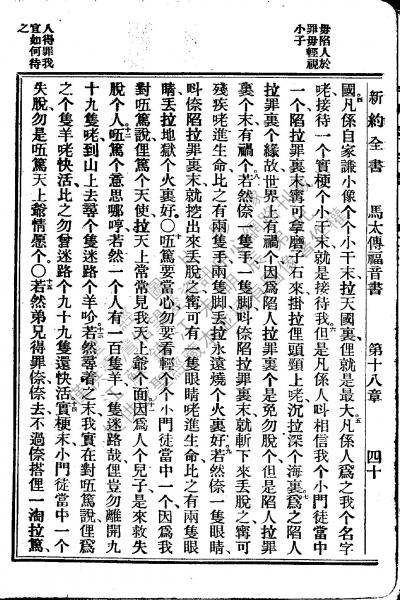 毋陷人於
罪毋輕視
小子
人得罪我
宜如何待
之
新約全書 馬太傳福音書 第十八章 四十
國凡係自家謙小像个个小干末拉天國裏俚就是最大凡係人爲之我个名字
咾接待一个實梗个小干末就是接待我但是凡係人呌相信我个小門徒當中
一个陷拉罪裏末甯可拿磨子石來掛拉俚頭頸上咾沉拉深个海裏爲之陷人
拉罪裏个緣故世界上有禍个因爲陷人拉罪裏个是免勿脫个但是陷人拉罪
裏个末有禍个若然倷一隻手一隻脚呌倷陷拉罪裏末就斬下來丟脫之甯可
殘疾咾進生命比之有兩隻手兩隻脚丟拉永遠燒个火裏好若然倷一隻眼睛
呌倷陷拉罪裏末就挖出來丟脫之甯可有一隻眼睛咾進生命比之有兩隻眼
睛丟拉地獄个火裏好〇𠲎篤要當心勿要看輕个个小門徒當中一个因爲我
對𠲎篤說俚篤个天使拉天上常常見我天上爺个面因爲人个兒子是來救失
脫个人𠲎篤个意思哪哼若然一个人有一百隻羊一隻迷路哉俚豈勿離開九
十九隻咾到山上去尋个隻迷路个羊吤若然尋着之末我實在對𠲎篤說俚爲
之个隻羊咾快活比之勿曾迷路个九十九隻還快活實梗末小門徒當中一个
失脫勿是𠲎篤天上爺情愿个〇若然弟兄得罪倷倷去不過倷搭俚一淘拉篤